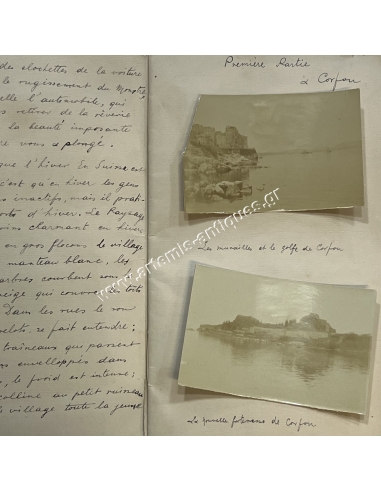 des clochettes de la voiture
le rougissement du
elle l'automobile, qui
retirer de la rêverie
la beauté imposante
vous a plongé.
que l'hiver En Suisse est
c'est qu'en hiver les gens
inactifs, mais il prati-
d'hiver. Le Paysage
moins charmant en hiver
en gros flocons le village
manteau blanc, les
arbres courbent sous
neige qui couvre les toits
Dans les rues le son
grelots, se fait entendre;
traîneaux qui passent
enveloppés dans
, le froid est intense;
colline au petit ruisseau
le village toute la
Première Partie
à Corfou
Les murailles et le golfe de Corfou
La nouvelle forteresse de Corfou
www.artemis-antiques.gr